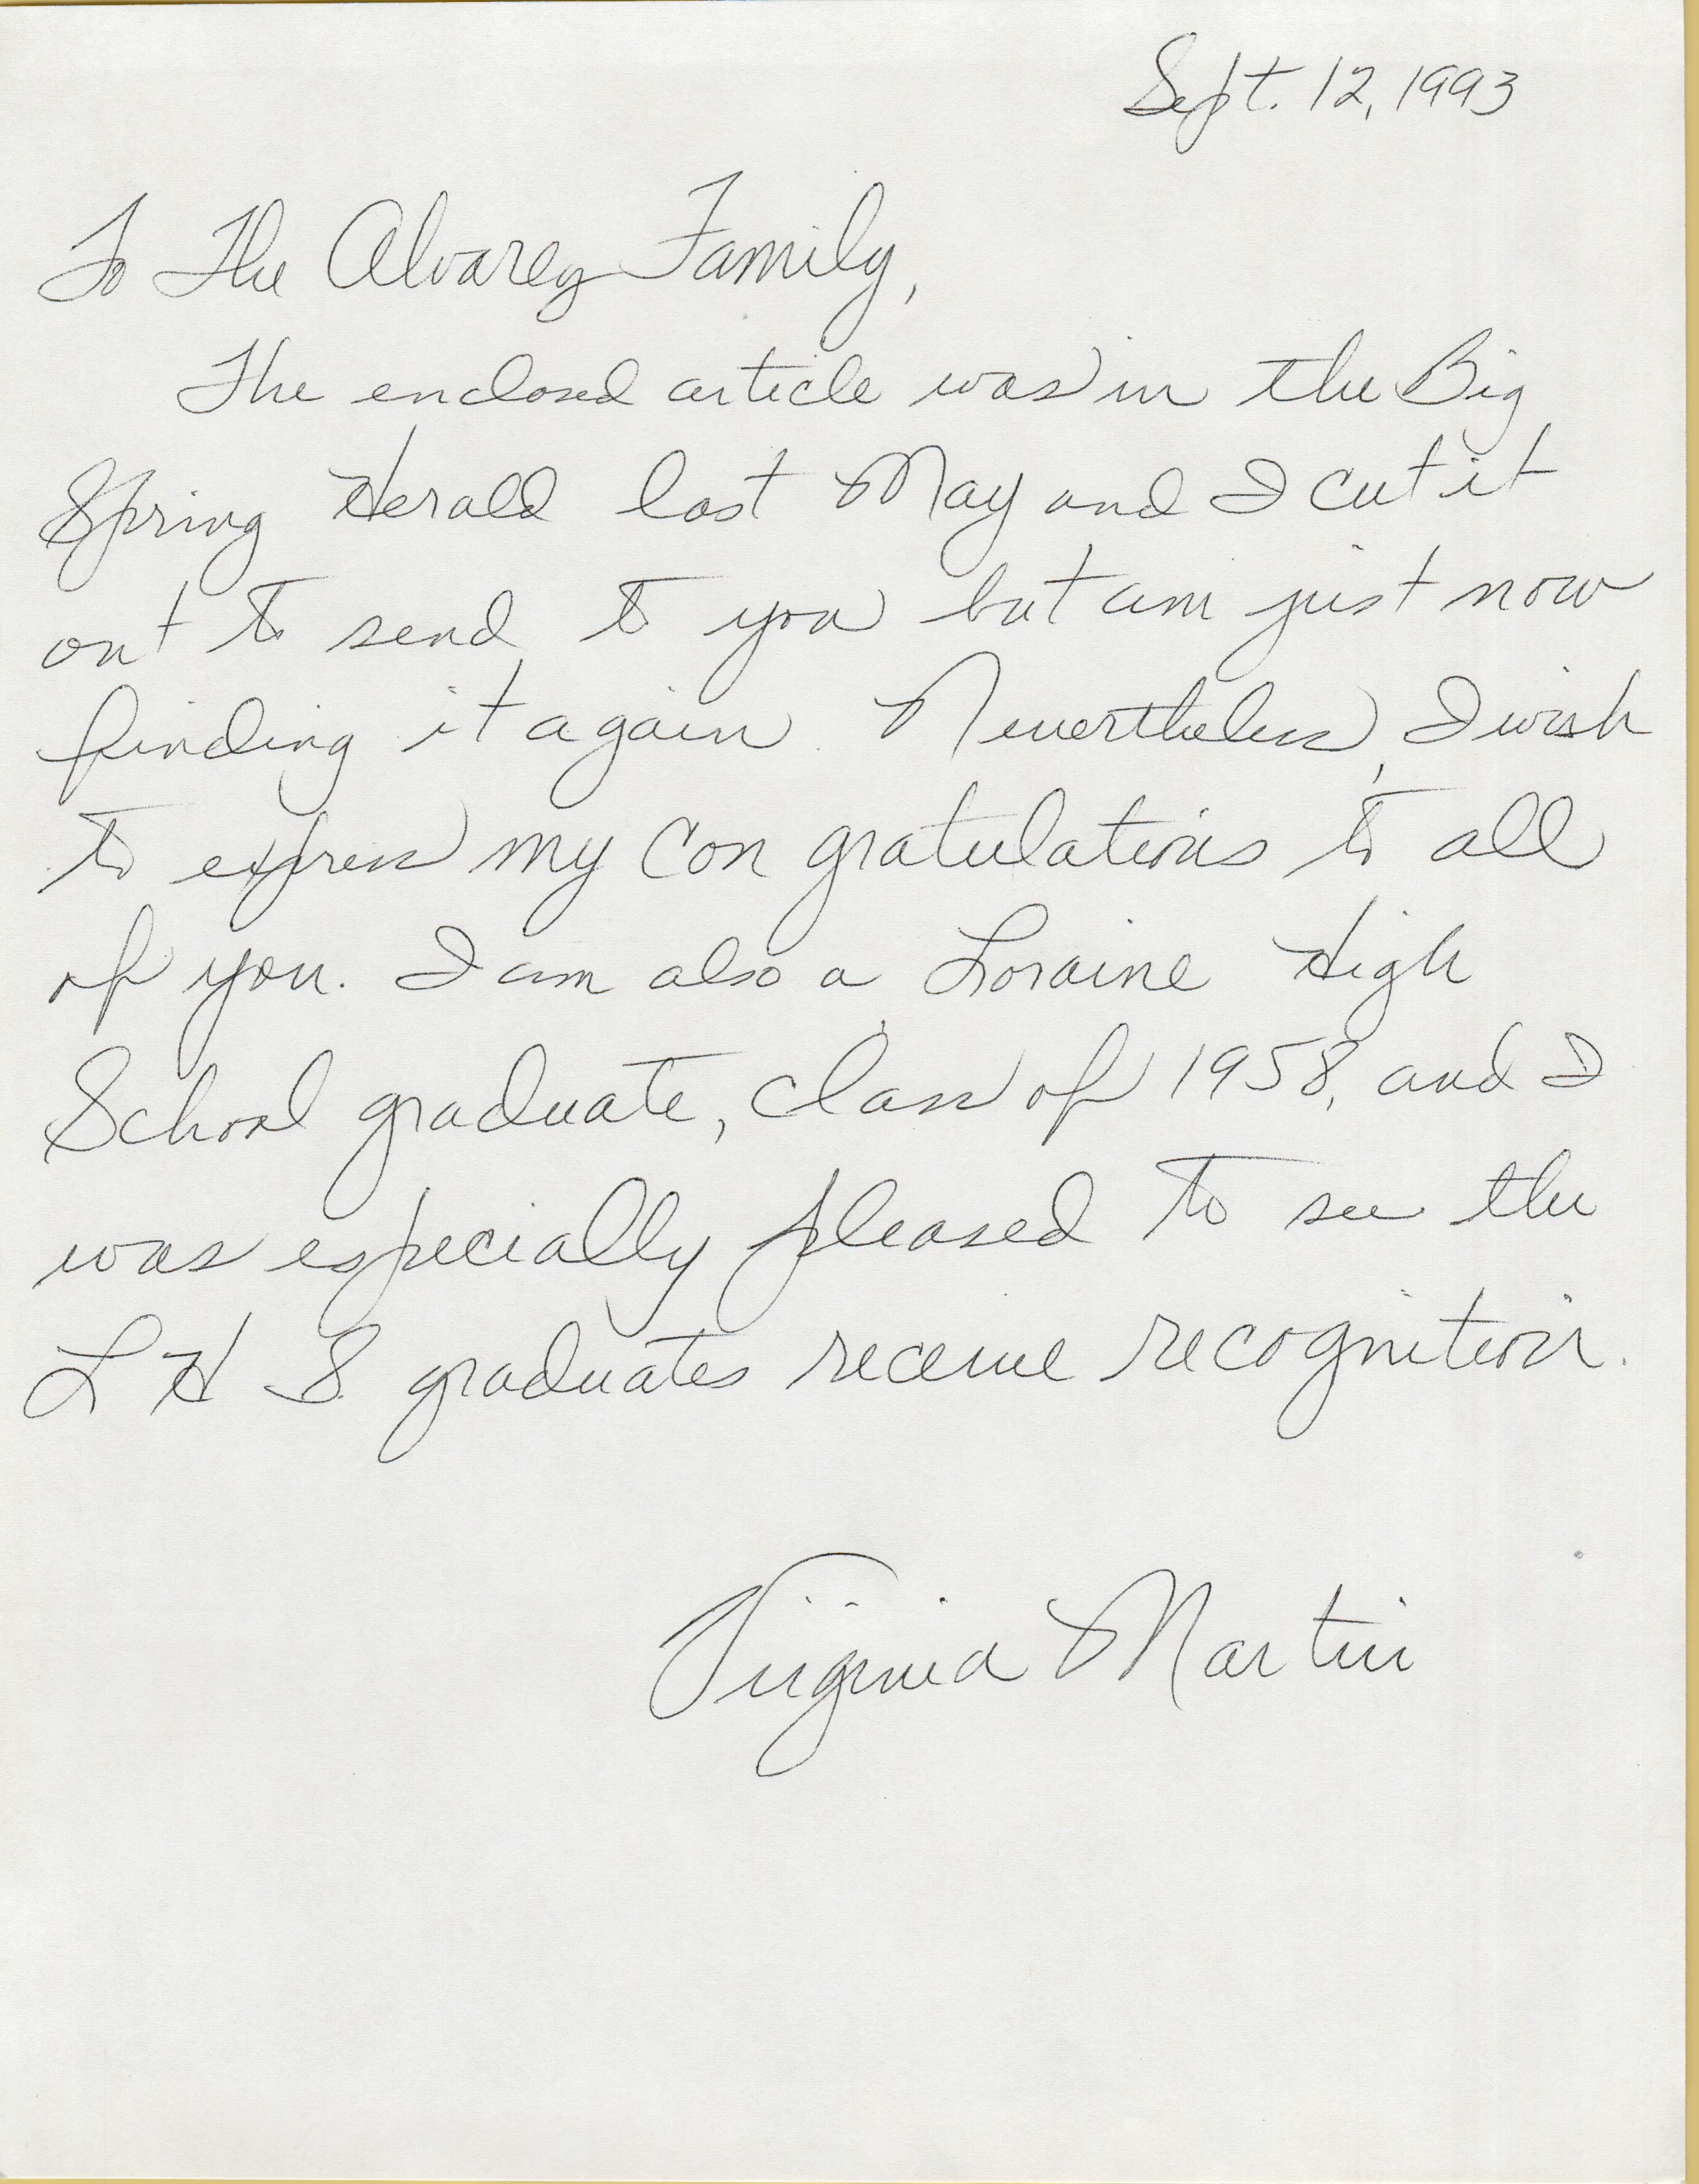 Sept. 12, 1993
To The Alvarez Family,
The enclosed article was in the Big
Spring Herald last May and I cut it
out to send to you but am just now
finding it again. Nevertheless, I wish
to express my congratulations to all
of you. I am also a Loraine High
School graduate, class of 1958, and I
was especially pleased to see the
LHS graduates receive recognition.
Virginia Martin